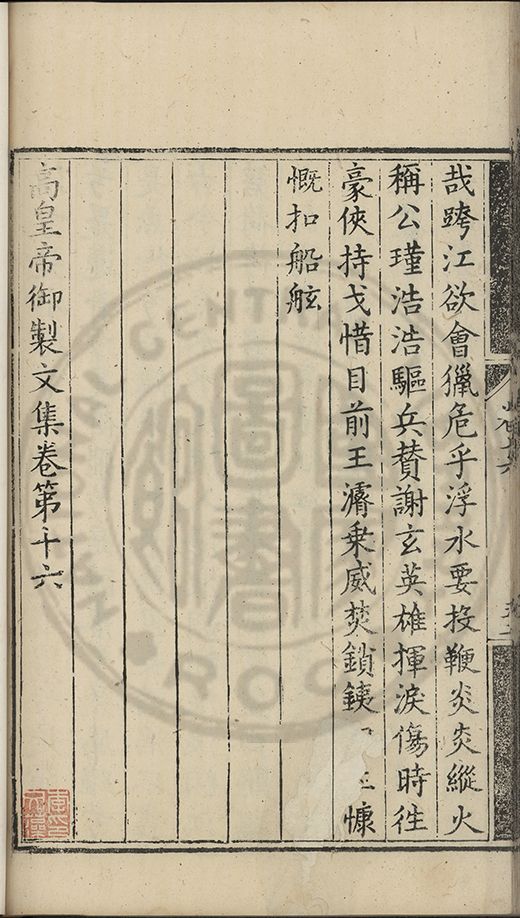 哉跨江欲會獵危乎浮水要投鞭炎炎縱火
稱公瑾浩浩驅兵賛謝玄英雄揮淚傷時徃
豪俠持戈惜目前王濬乗威焚鎖鉄慷
慨扣船舷
高皇帝御製文集卷第十六